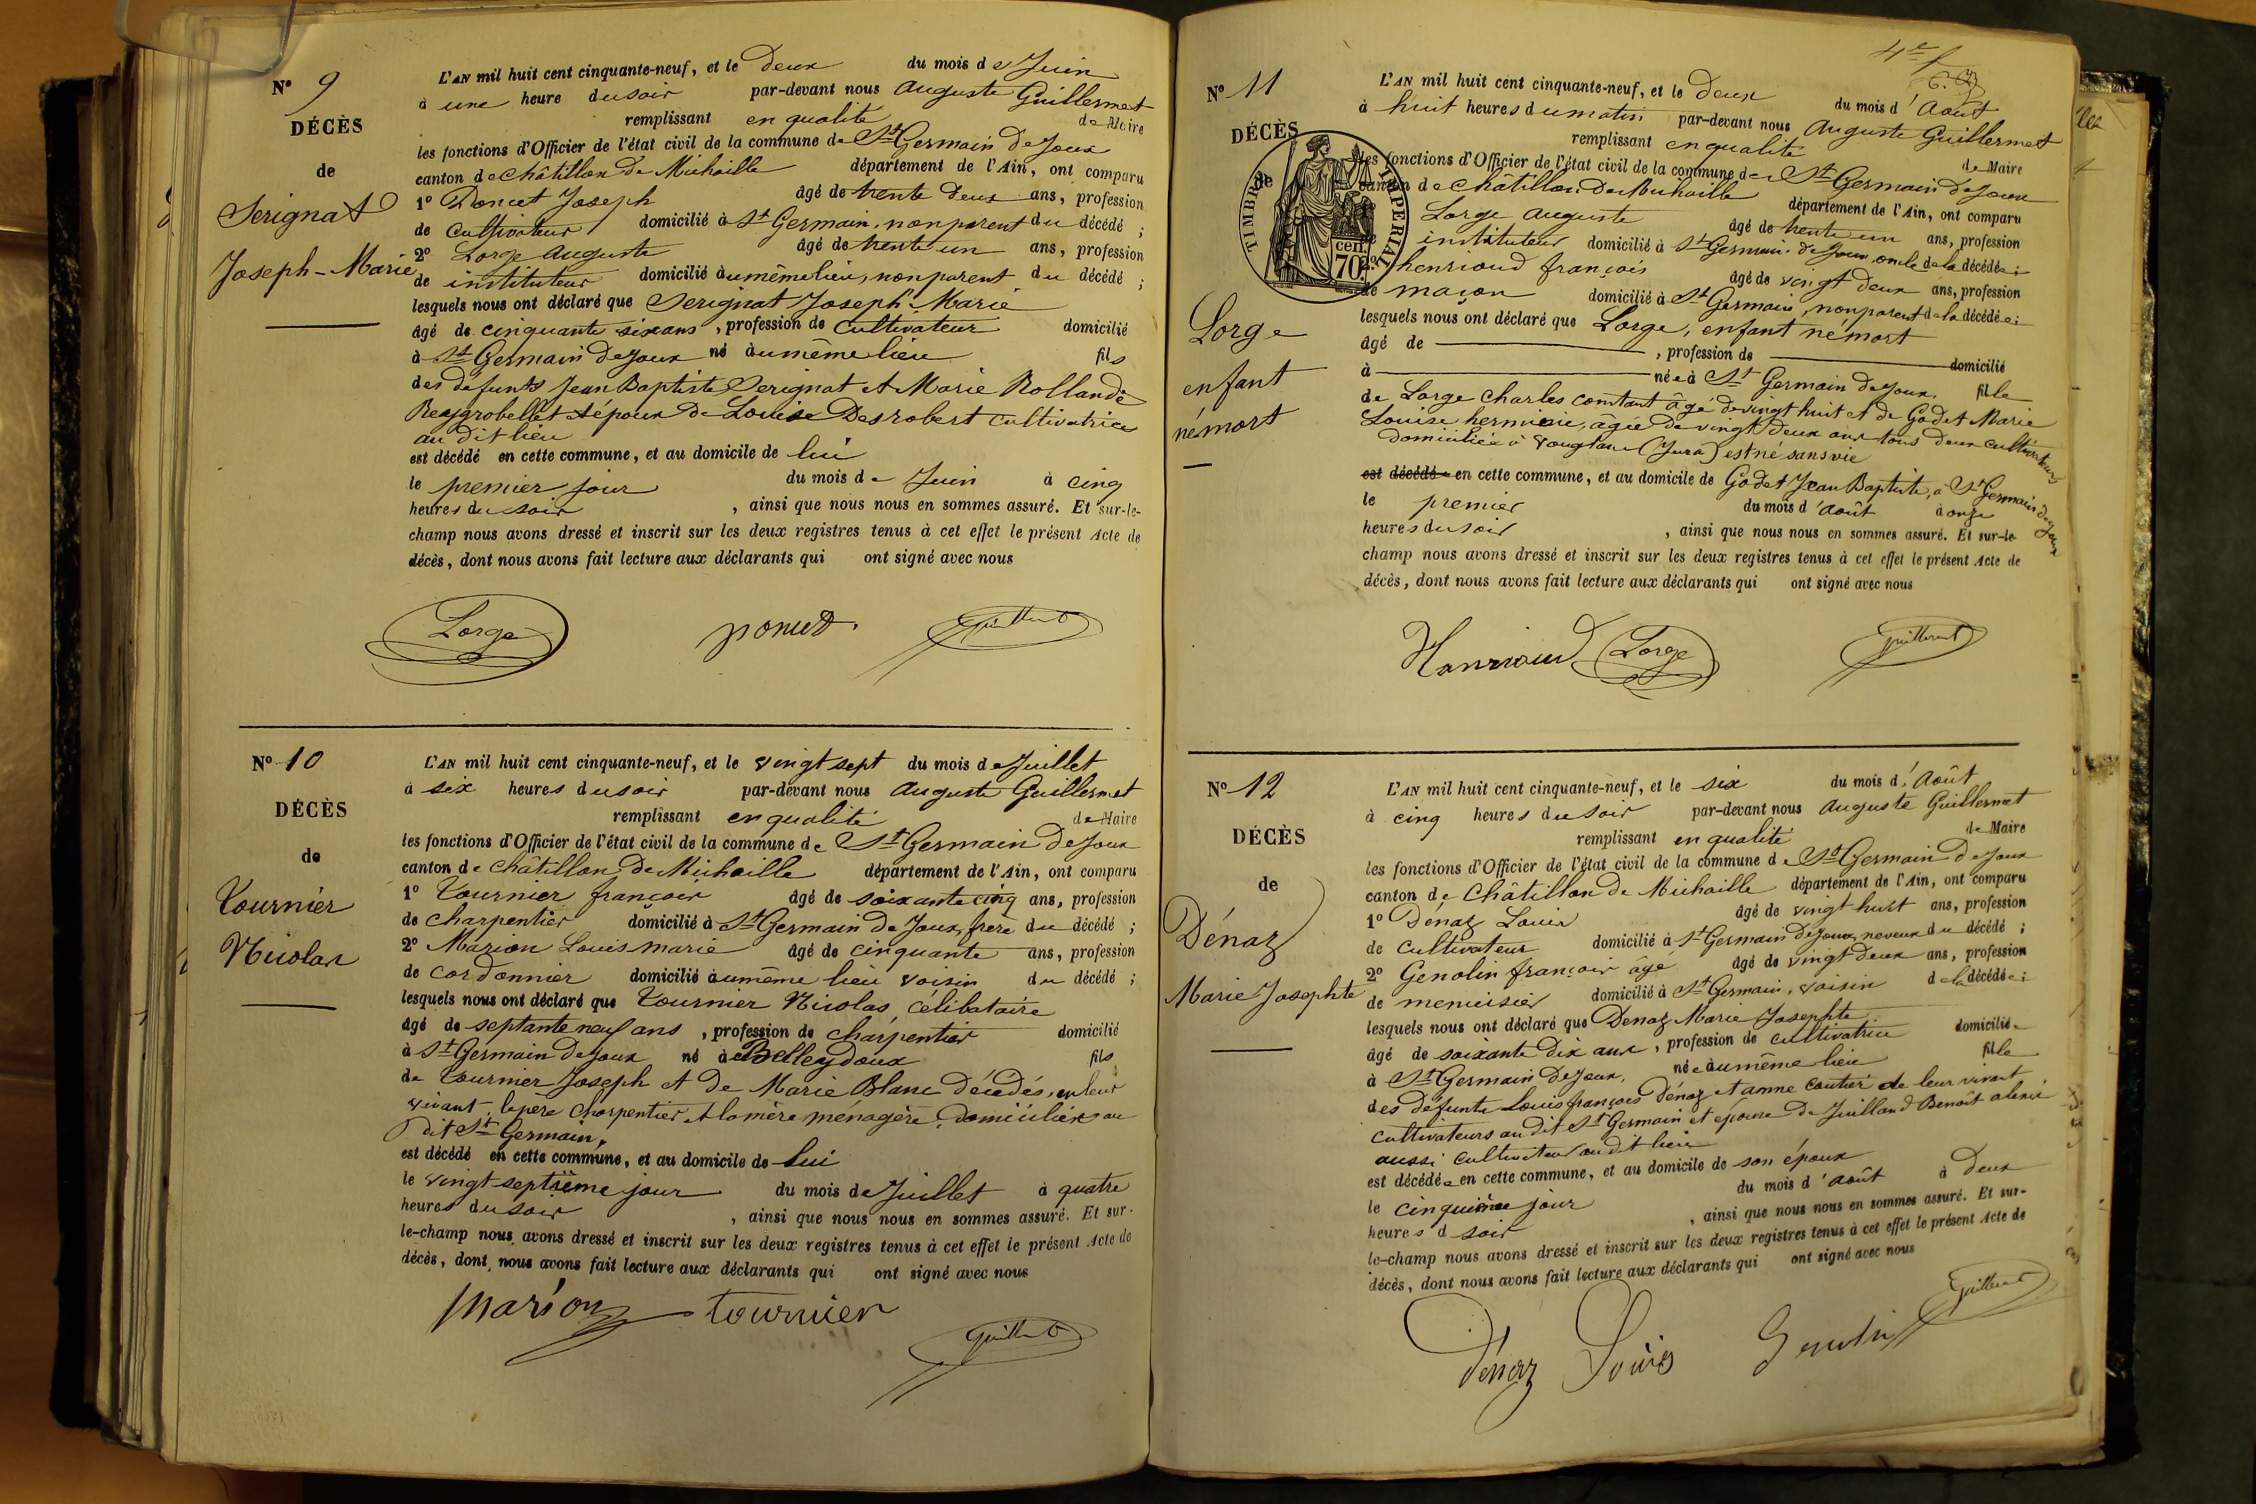 N° 9
DÉCÈS
de
Serignat
Joseph-Marie
L'AN mil huit cent cinquante-neuf, et le deux du mois de Juin
à une heure du soir par-devant nous Auguste Guillermet
remplissant en qualité de Maire
les fonctions d'Officier de l'état civil de la commune de St Germain de Joux
canton de Châtillon de Michaille département de l'Ain, ont comparu
1° Poncet Joseph âgé de trente deux ans, profession
de cultivateur domicilié à St Germain, non parent du décédé ;
2° Lorge Auguste âgé de trente un ans, profession
de instituteur domicilié au même lieu, non parent du décédé ;
lesquels nous ont déclaré que Serignat Joseph-Marie
âgé de cinquante six ans, profession de cultivateur domicilié
à St Germain de Joux né au même lieu fils
des défunts Jean Baptiste Serignat et Marie Rollande
et époux de Louise Desrobert cultivatrice
au dit lieu
est décédé en cette commune, et au domicile de lui
le premier jour du mois de Juin à cinq
heures du soir, ainsi que nous nous en sommes assuré. Et sur-le-
champ nous avons dressé et inscrit sur les deux registres tenus à cet effet le présent Acte de
décès, dont nous avons fait lecture aux déclarants qui ont signé avec nous
Lorge poncet Guillermet
N° 10
DÉCÈS
de
Tournier
Nicolas
L'AN mil huit cent cinquante-neuf, et le vingt sept du mois de Juillet
à six heures du soir par-devant nous Auguste Guillermet
remplissant en qualité de Maire
les fonctions d'Officier de l'état civil de la commune de St Germain de Joux
canton de Châtillon de Michaille département de l'Ain, ont comparu
1° Tournier françois âgé de soixante cinq ans, profession
de charpentier domicilié à St Germain de Joux, frère du décédé ;
2° Marion Louis marie âgé de cinquante ans, profession
de cordonnier domicilié au même lieu voisin du décédé ;
lesquels nous ont déclaré que Tournier Nicolas, célibataire
âgé de septante neuf ans, profession de charpentier domicilié
à St Germain de Joux né à Belleydoux fils
de Tournier Joseph et de Marie Blanc décédés, en leur
vivant, le père charpentier et la mère ménagère, domiciliés au
dit St Germain,
est décédé en cette commune, et au domicile de lui
le vingt septième jour du mois de Juillet à quatre
heures du soir, ainsi que nous nous en sommes assuré. Et sur-
le-champ nous avons dressé et inscrit sur les deux registres tenus à cet effet le présent Acte de
décès, dont nous avons fait lecture aux déclarants qui ont signé avec nous
Marion tournier Guillermet
4e f
N° 11
DÉCÈS
de
TIMBRE IMPERIAL
70 cen.
Lorge
enfant
né mort
L'AN mil huit cent cinquante-neuf, et le deux du mois d'Août
à huit heures du matin par-devant nous Auguste Guillermet
remplissant en qualité de Maire
les fonctions d'Officier de l'état civil de la commune de St Germain de Joux
canton de Châtillon de Michaille département de l'Ain, ont comparu
Lorge Auguste âgé de trente un ans, profession
instituteur domicilié à St Germain de Joux, oncle de la décédée ;
2° henrioud françois âgé de vingt deux ans, profession
de maçon domicilié à St Germain, non parent de la décédée ;
lesquels nous ont déclaré que Lorge, enfant né mort
âgé de , profession de domicilié
à née à St Germain de Joux fille
de Lorge Charles constant âgé de vingt huit et de Godet Marie
Louise herminie, âgée de vingt deux ans tous deux cultivateurs
domiciliés à Vouglans (Jura) est né sans vie
est décédé en cette commune, et au domicile de Godet Jean Baptiste, à St Germain de Joux
le premier du mois d'août à onze
heures du soir, ainsi que nous nous en sommes assuré. Et sur-le-
champ nous avons dressé et inscrit sur les deux registres tenus à cet effet le présent Acte de
décès, dont nous avons fait lecture aux déclarants qui ont signé avec nous
Henrioud Lorge Guillermet
N° 12
DÉCÈS
de
Dénaz
Marie Josephte
L'AN mil huit cent cinquante-neuf, et le six du mois d'Août
à cinq heures du soir par-devant nous Auguste Guillermet
remplissant en qualité de Maire
les fonctions d'Officier de l'état civil de la commune de St Germain de Joux
canton de Châtillon de Michaille département de l'Ain, ont comparu
1° Dénaz Louis âgé de vingt huit ans, profession
de cultivateur domicilié à St Germain de Joux, neveu du décédé ;
2° Genolin françois âgé âgé de vingt deux ans, profession
de menuisier domicilié à St Germain, voisin de la décédée ;
lesquels nous ont déclaré que Denaz Marie Josephte
âgé de soixante dix ans, profession de cultivatrice domicilié
à St Germain de Joux, née au même lieu fille
des défunts Louis françois Dénaz et anne de leur vivant
cultivateurs au dit St Germain et épouse de Juilland Benoît
aussi cultivateur au dit lieu
est décédée en cette commune, et au domicile de son époux
le cinquième jour du mois d'août à deux
heures d soir, ainsi que nous nous en sommes assuré. Et sur-
le-champ nous avons dressé et inscrit sur les deux registres tenus à cet effet le présent Acte de
décès, dont nous avons fait lecture aux déclarants qui ont signé avec nous
Dénaz Louis Genolin Guillermet